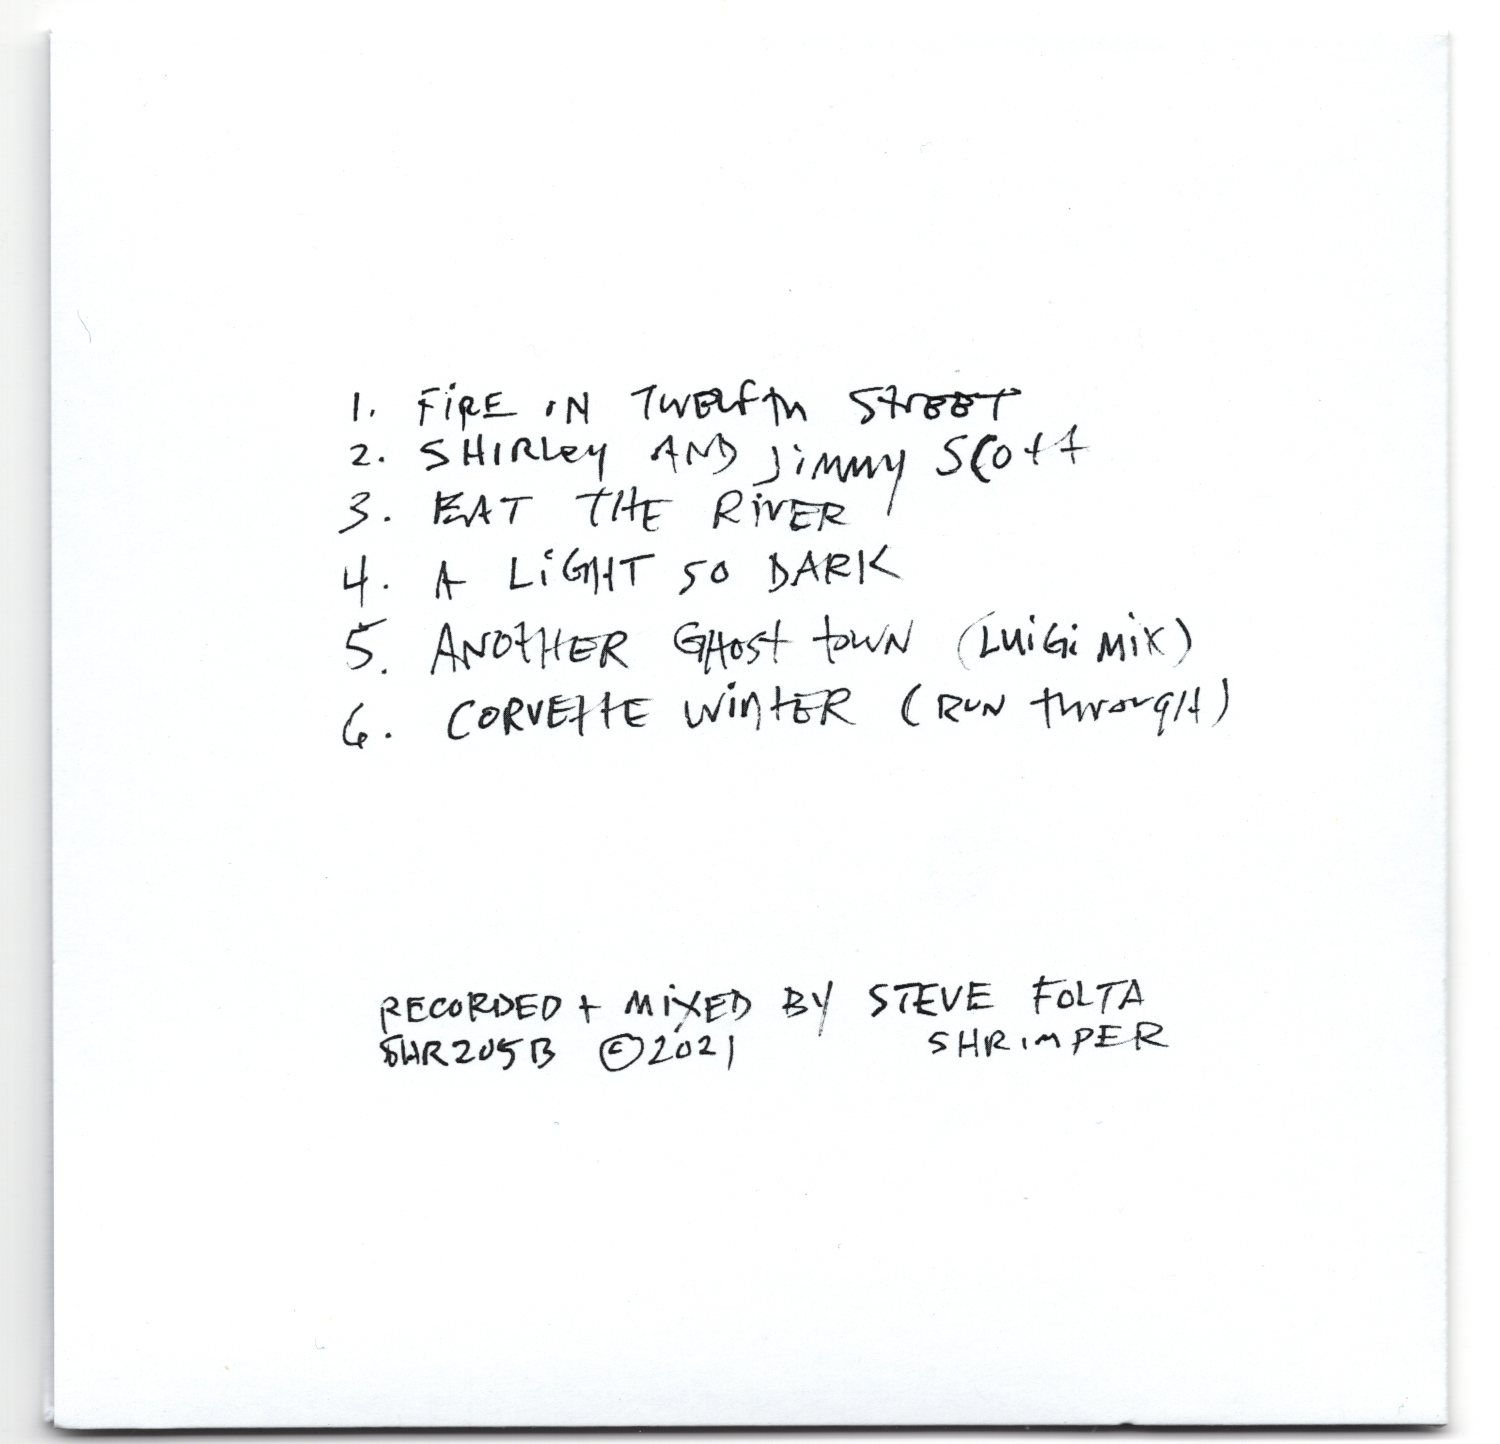 1. FiRE iN TWELfth StREET
2. SHIRLey AND Jimmy SCott
3. EAT THE RiVER
4. A LiGHT SO DARK
5. ANOtHER GHost town (LUiGi MiX)
6. CORVEttE WintER (RUN througH)
RECORDED + MiXED BY STEVE FOLTA
SHR205B ©2021 SHRiMPER